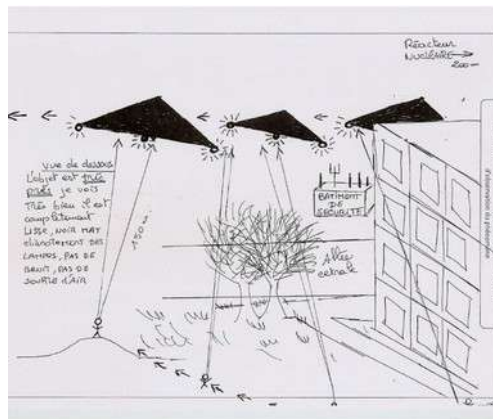 Réacteur
NUCLÉAIRE →
200 m
vue de dessous
L'objet est très
près je vois
Très bien il est
complètement
LISSE, NOIR MAT
clignotement DES
LAMPES, PAS DE
BRUIT, PAS DE
SOUFFLE d'AIR
150 m
BÂTIMENT
DE
SÉCURITÉ
Allée
centrale
d'observation du phénomène